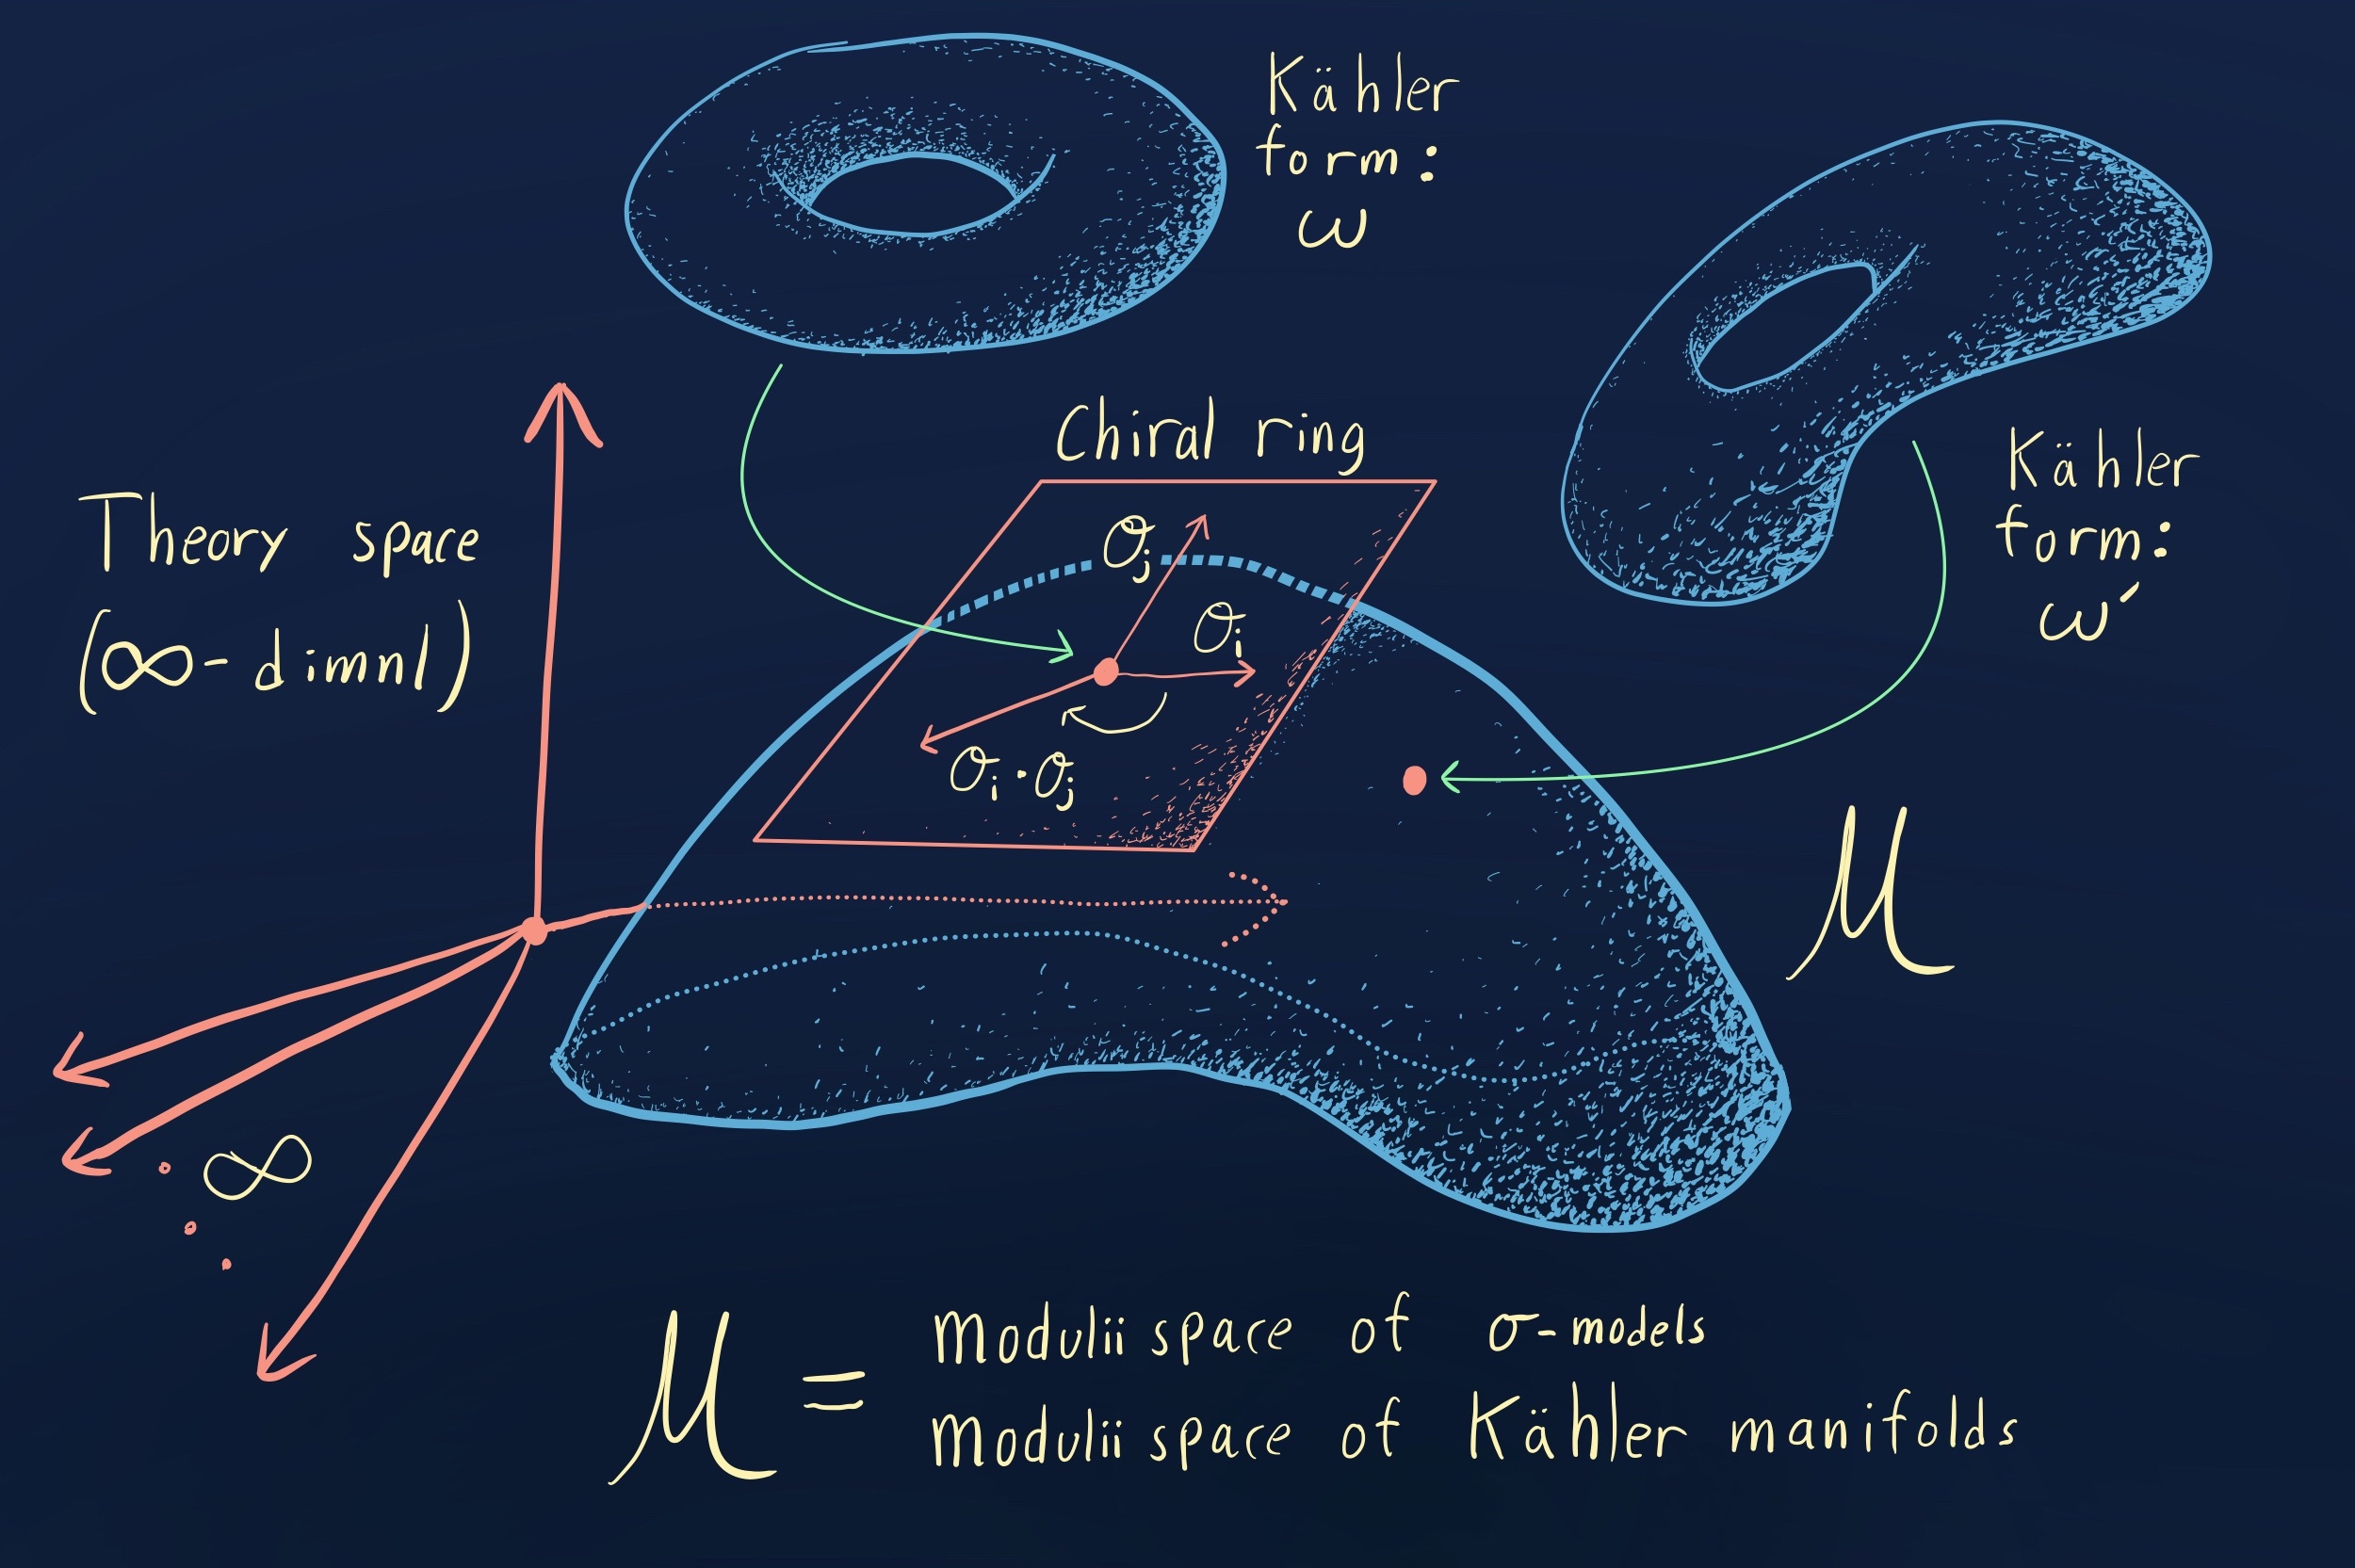 Kähler
form:
ω
Kähler
form:
ω′
Chiral ring
Theory space
(∞-dimnl)
𝒪j
𝒪i
𝒪i·𝒪j
ℳ
∞
ℳ =
modulii space of σ-models
modulii space of Kähler manifolds